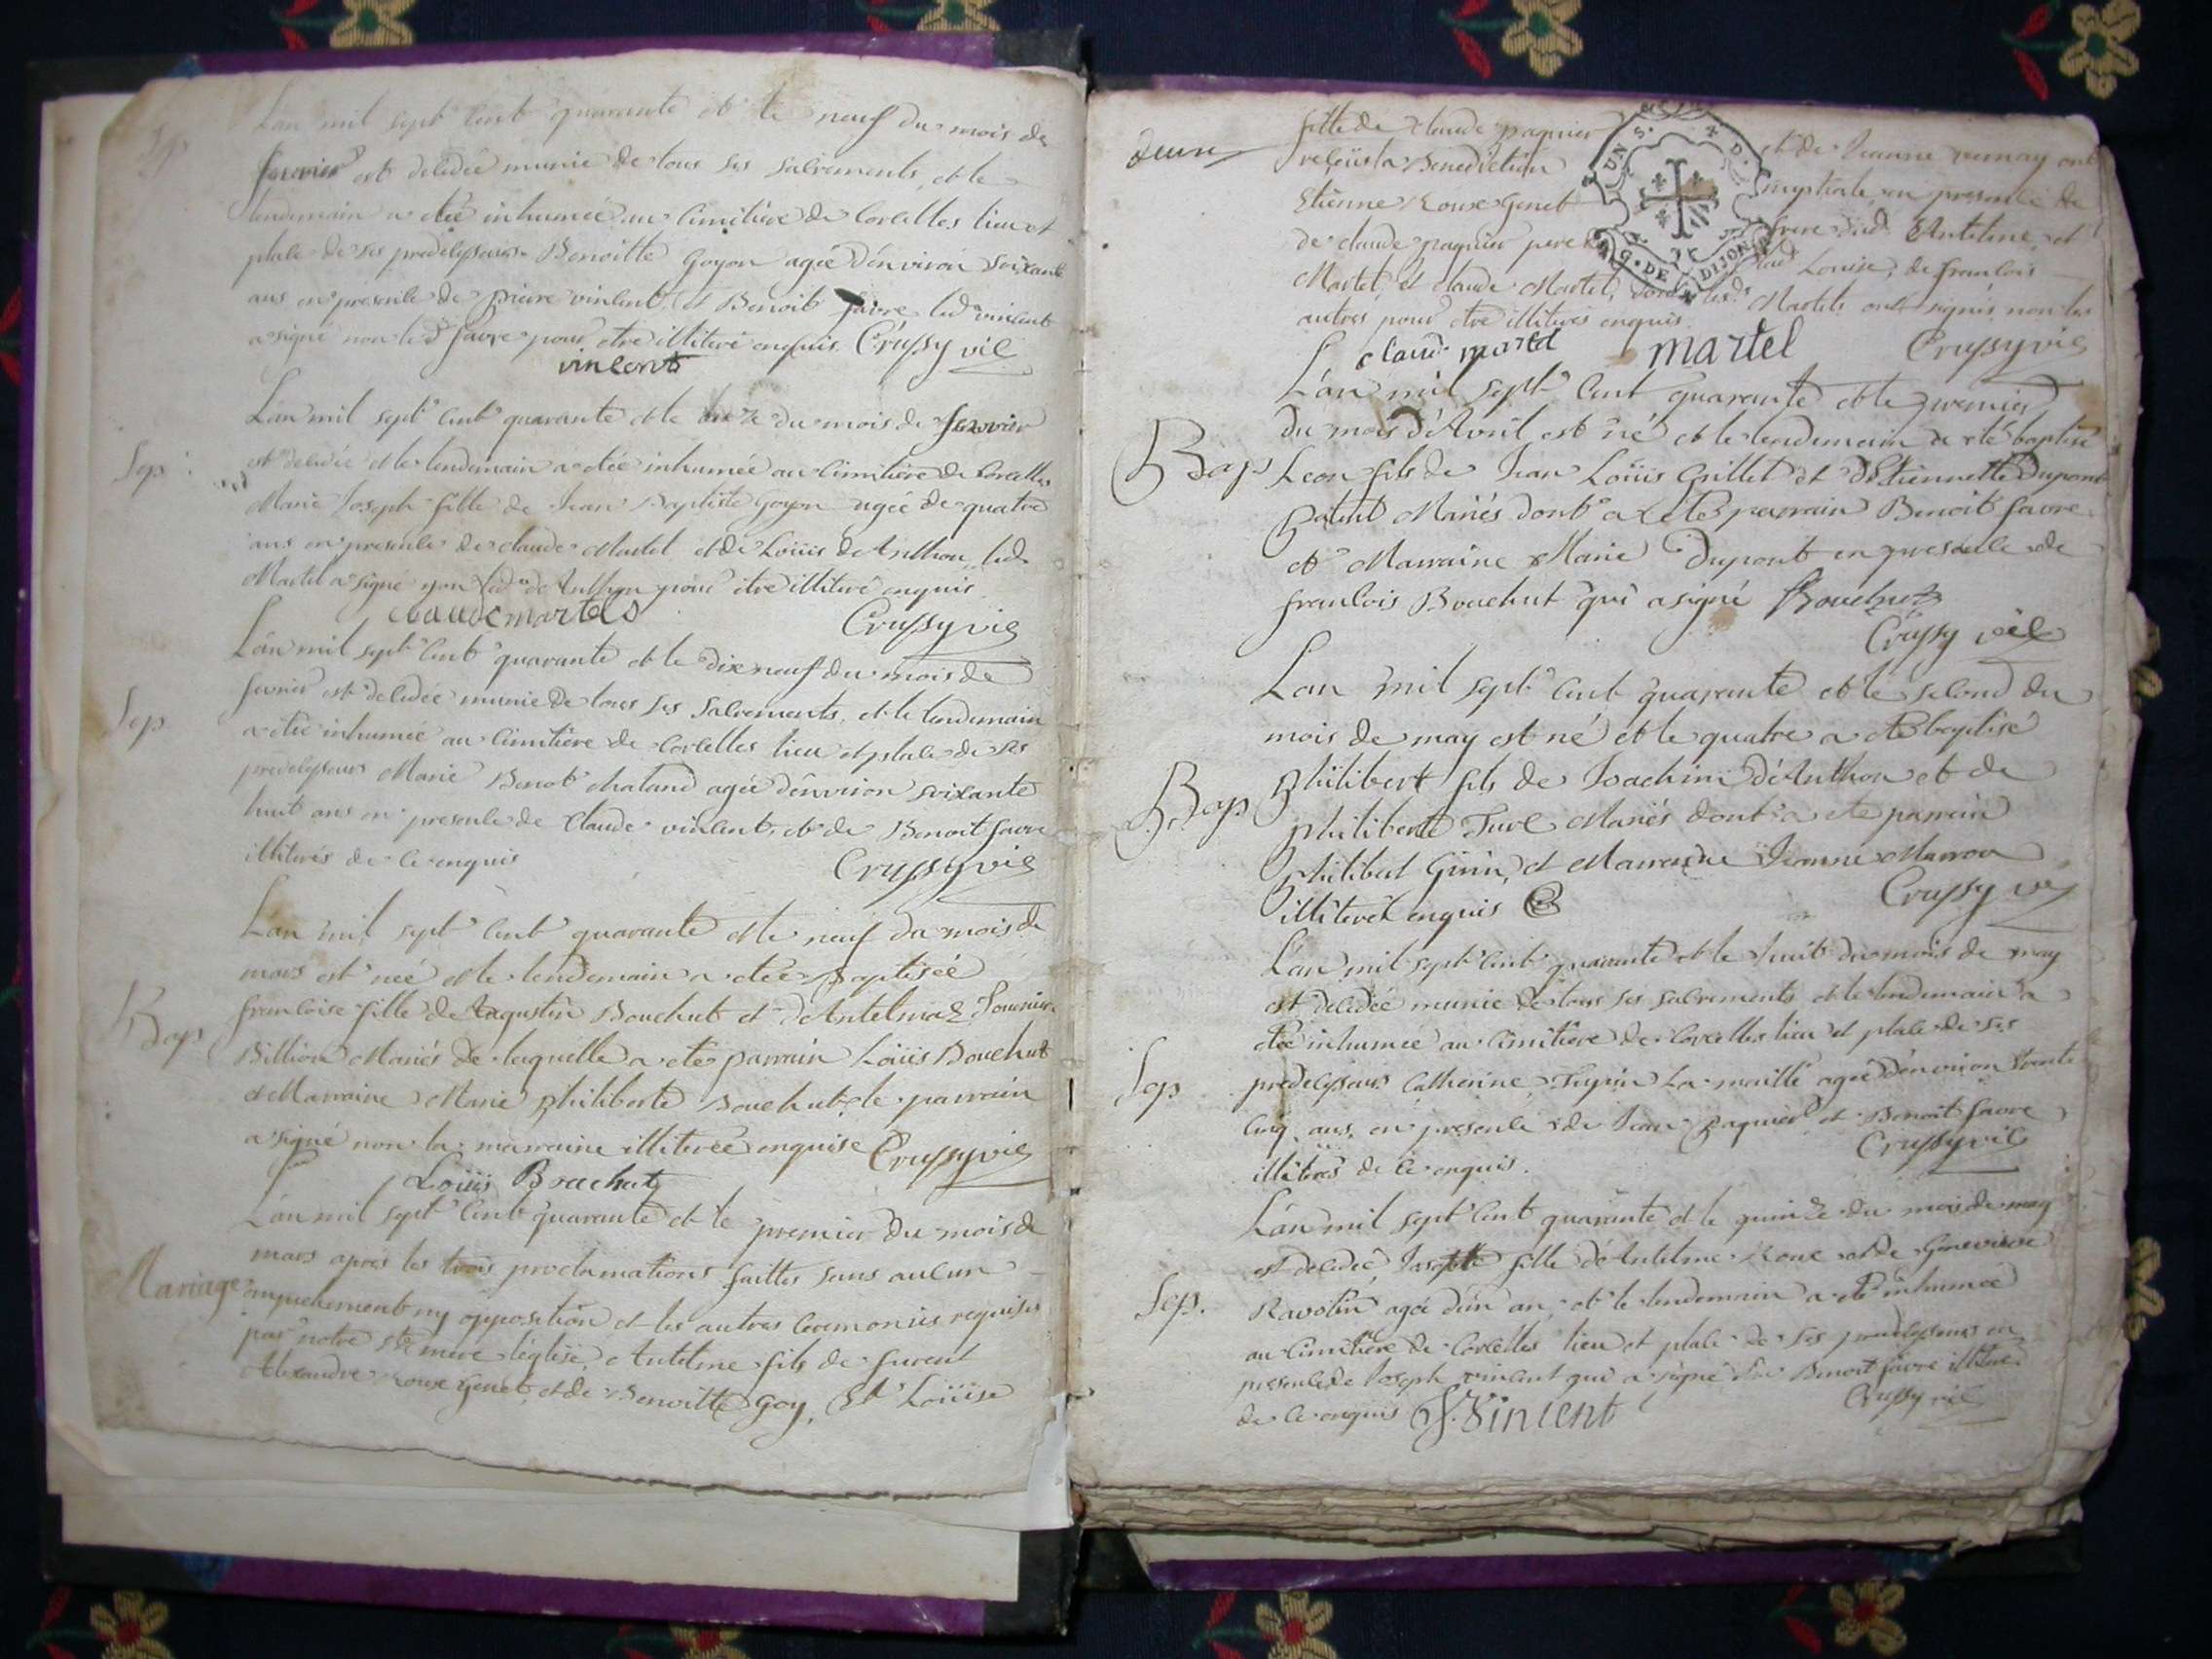 Sep
L'an mil sept cent quarante et le neuf du mois de
fevrier est decedée munie de tous ses sacrements, et le
lendemain a etée inhumée au cimitière de Corcelles lieu et
place de ses predecesseurs Benoitte Goyon agée d'environ soixante
ans en presence de pierre vincent et Benoit favre led vincent
a signé non led favre pour etre illiteré enquis Crussy vic
vincent
L'an mil sept cent quarante et le onze du mois de fevrier
Sep
est decedée et le lendemain a etée inhumée au cimitière de Corcelles
Marie Joseph fille de Jean Baptiste Goyon agée de quatre
ans en presence de claude Martel et de Loüis deAnthon, led
Martel a signé non led deAnthon pour etre illiteré enquis
claude martel Crussy vic
L'an mil sept cent quarante et le dix neuf du mois de
Sep
fevrier est decedée munie de tous ses sacrements, et le lendemain
a etée inhumée au cimitière de Corcelles lieu et place de ses
predecesseurs Marie Benoit chaland agée d'environ soixante
huit ans en presence de Claude vincent, et de Benoit favre
illiterés de ce enquis Crussy vic
L'an mil sept cent quarante et le neuf du mois de
mars est neé et le lendemain a etée Baptiseé
Bap
francoise fille de Augustin Bouchut et d'Antelmaz
Billion Mariés de laquelle a ete parrain Loüis Bouchut
et Marraine Marie philiberte Bouchut, le parrain
a signé non la marraine illitereé enquise Crussy vic
Loüis Bouchut
L'an mil sept cent quarante et le premier du mois de
mars après les trois proclamations faittes sans aucun
Mariage
empechement ny opposition et les autres ceremonies requises
par notre ste mere l'église, Antelme fils de furent
Alexandre roux Genet, et de Benoitte Goy, Et Loüise
fille de claude pagnier et de Jeanne vernay ont
reçüs la Benediction nuptiale, en presence de
Etienne Roux Genet frere dud. Antelme, et
de claude pagnier pere de lad Louise, de francois
Martel, et claude Martel, dont lesd Martels ont signés, non les
autres pour etre illiteres enquis.
claude martel martel Crussy vic
UN S. X D.
G. DE DIJON
L'an mil sept cent quarante et le premier
du mois d'Avril est né et le lendemain a eté baptisé
Bap
Leon fils de Jean Loüis Grillet et d'Etiennette Dupont
Mariés dont a eté parrain Benoit favre
et Marraine Marie Dupont en presence de
francois Bouchut qui a signé Bouchut
Crussy vic
L'an mil sept cent quarante et le second du
mois de may est né et le quatre a eté baptisé
Bap
philibert fils de Joachim d'Anthon et de
philiberte Mariés dont a ete parrain
philibert Girin, et Marraine Jeanne Marron
illiterés enquis Crussy vic
L'an mil sept cent quarante et le huit du mois de may
est decedée munie de tous ses sacrements et le lendemain a
etée inhumée au cimitière de Corcelles lieu et place de ses
Sep
predecesseurs Catherine Tupin La maille agée d'environ trente
cinq ans, en presence de Jean pagnier et Benoit favre
illiterés de ce enquis. Crussy vic
L'an mil sept cent quarante et le quinze du mois de may
est decedée, Josephe fille d'Antelme Roux et de Genevieve
Sep.
Ravolin agée d'un an, et le lendemain a eté inhumée
au cimitière de Corcelles lieu et place de ses predecesseurs en
presence de Joseph vincent qui a signé Benoit favre illiteré
de ce enquis J. Vincent Crussy vic